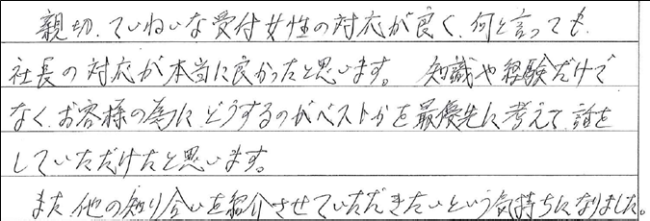 親切、ていねいな受付女性の対応が良く、何と言っても、
社長の対応が本当に良かったと思います。 知識や経験だけで
なく、お客様の為に、どうするのがベストかを最優先に考えて、話を
していただけたと思います。
また、他の知り合いを紹介させていただきたいという気持ちになりました。